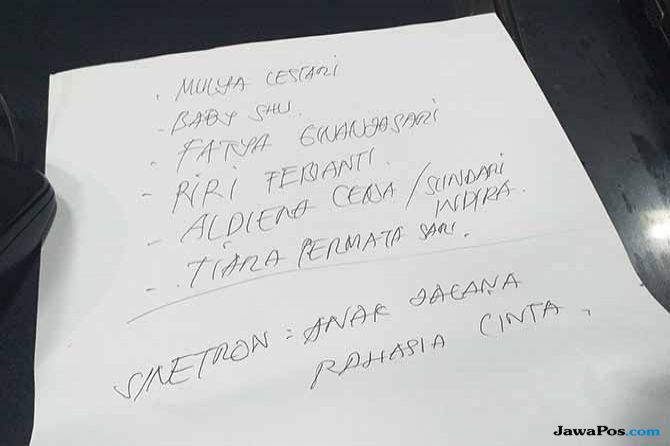 . MULYA LESTARI
- BABY SHU.
- FATYA GINANJASARI
- RIRI FEBIANTI.
- ALDIENA CENA / SUNDARI INDIRA.
- TIARA PERMATA SARI.
SINETRON : ANAK JALANAN
RAHASIA CINTA,
JawaPos.com